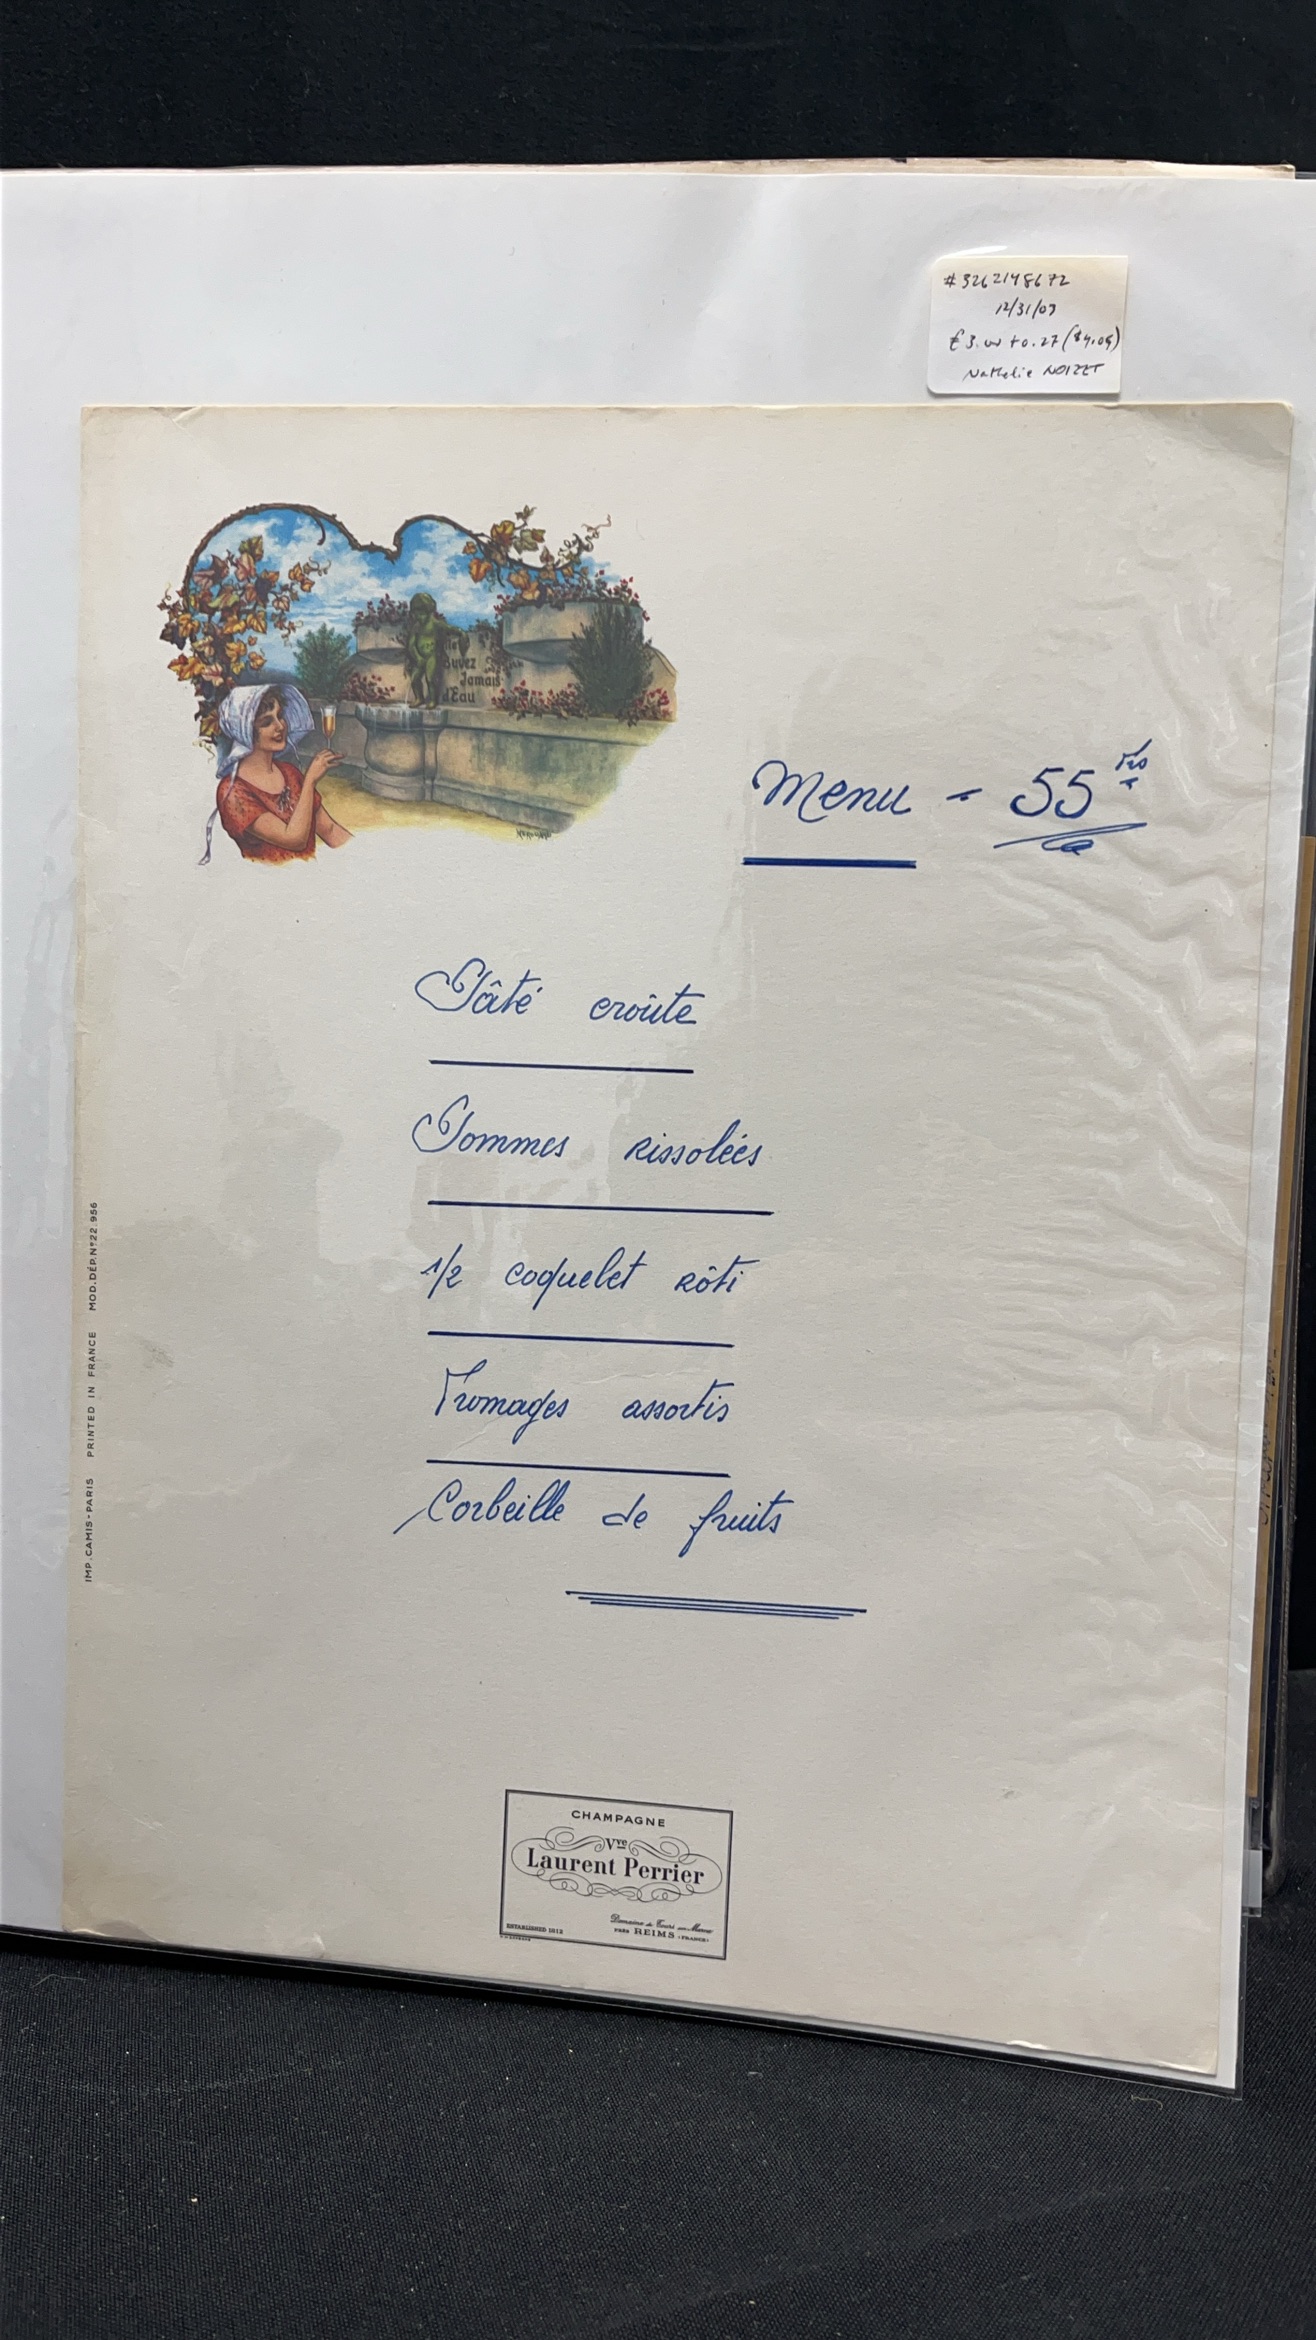 #3262148672
12/31/09
€3.00 + 0.27 ($4.09)
Nathelie NOIZET
Buvez
Jamais
d'Eau
Menu - 55 Frs
Pâté croûte
Pommes rissolées
1/2 coquelet rôti
Fromages assortis
Corbeille de fruits
IMP. CAMIS - PARIS PRINTED IN FRANCE MOD. DÉP. N° 22.956
CHAMPAGNE
Vve
Laurent Perrier
ESTABLISHED 1812
Domaine de Tours sur Marne
PRÈS REIMS (FRANCE)